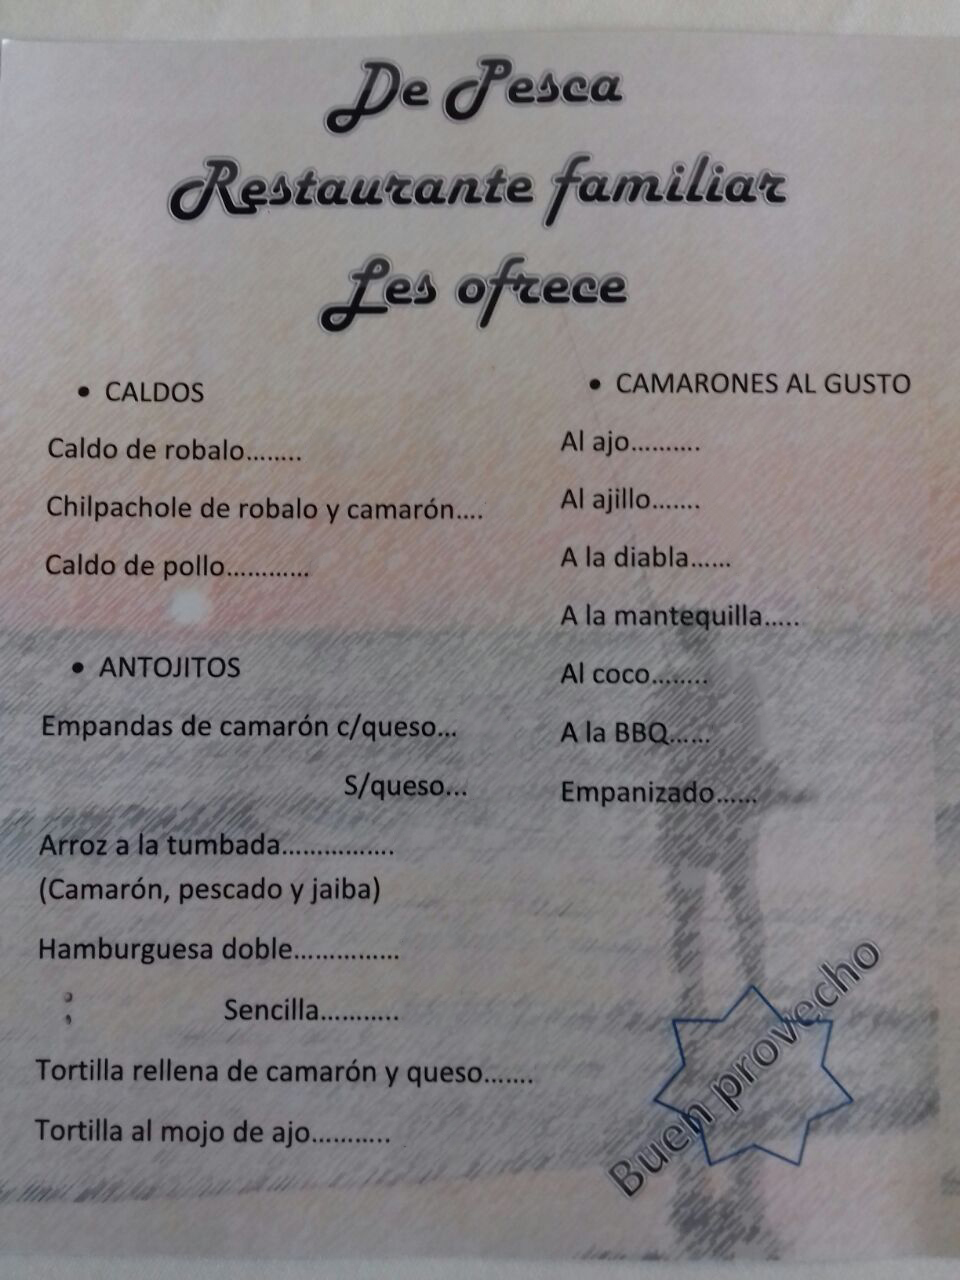 De Pesca
Restaurante familiar
Les ofrece
• CALDOS
Caldo de robalo........
Chilpachole de robalo y camarón....
Caldo de pollo............
• ANTOJITOS
Empandas de camarón c/queso...
S/queso...
Arroz a la tumbada................
(Camarón, pescado y jaiba)
Hamburguesa doble...............
Sencilla...........
Tortilla rellena de camarón y queso.......
Tortilla al mojo de ajo...........
• CAMARONES AL GUSTO
Al ajo..........
Al ajillo.......
A la diabla......
A la mantequilla.....
Al coco........
A la BBQ......
Empanizado......
Buen provecho